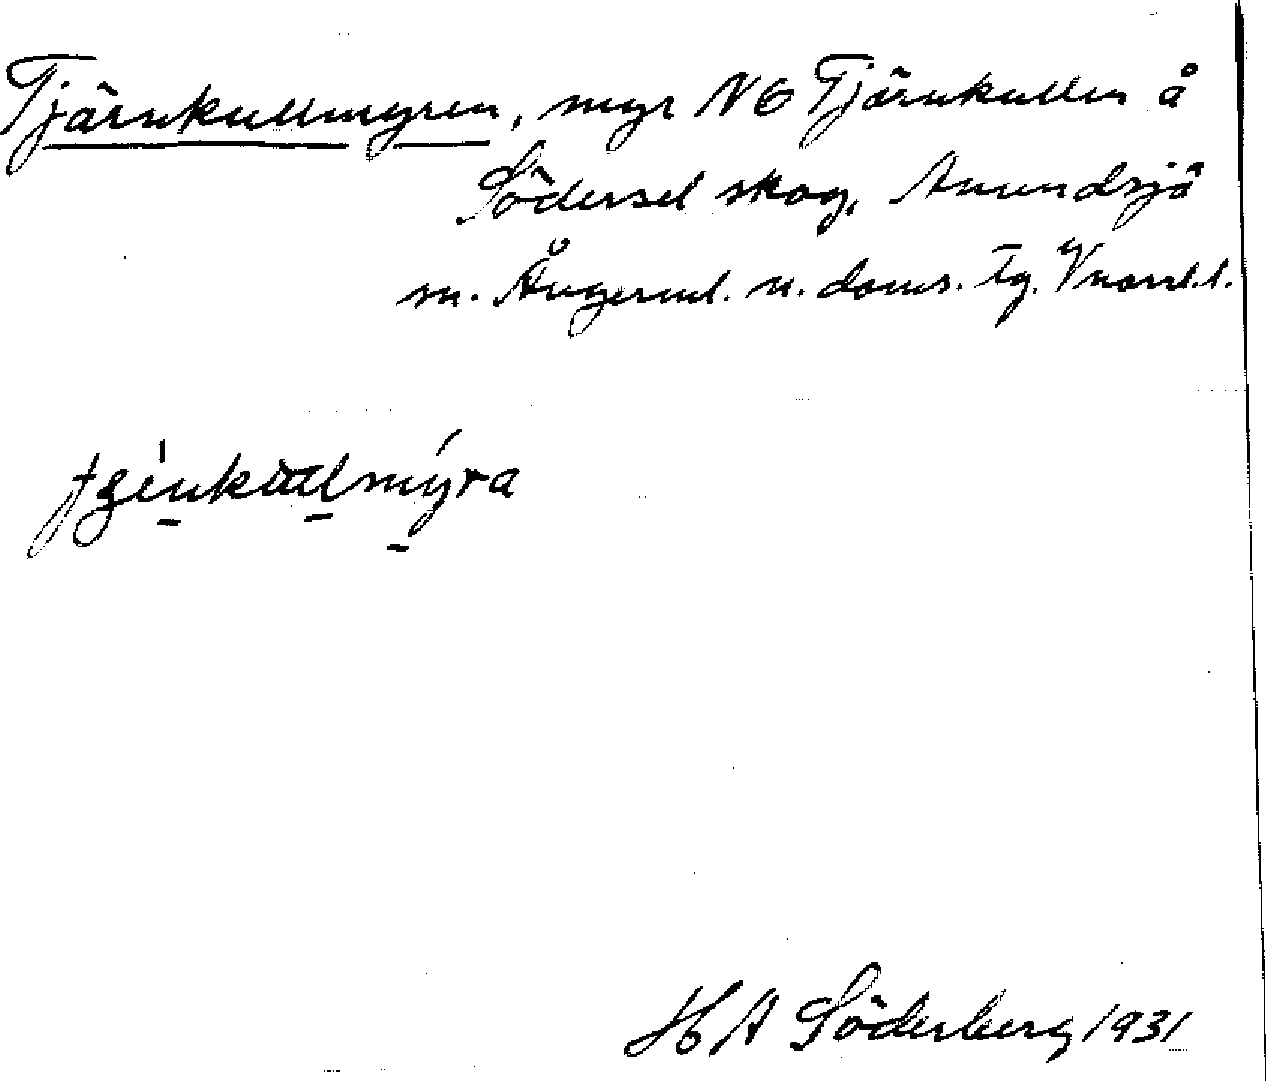 Tjärnkullmyren, myr NÖ Tjärnkullen å
Södersel skog, Anundsjö
sn. Ångerml. n. doms. tg. Vnorrl. l.
H A Söderberg 1931